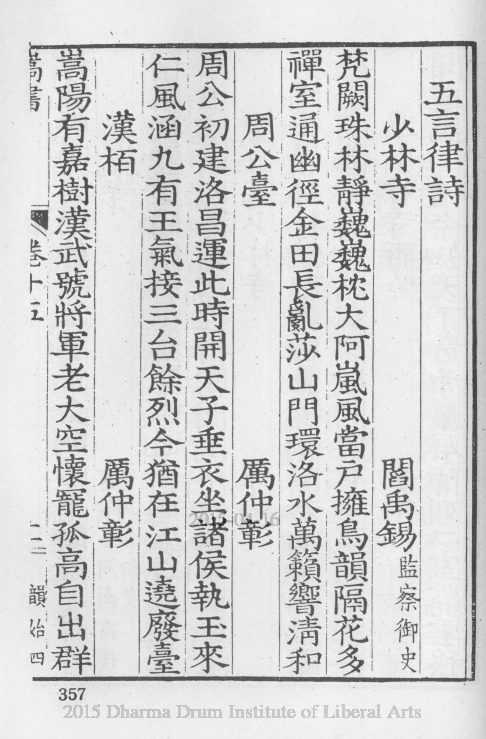 五言律詩
少林寺 閻禹錫 監察御史
梵闕珠林靜巍巍枕大阿嵐風當户擁鳥韻隔花多
禪室通幽徑金田長亂莎山門環洛水萬籟響清和
周公臺 厲仲彰
周公初建洛昌運此時開天子垂衣坐諸侯執玉來
仁風涵九有王氣接三台餘烈今猶在江山遶廢臺
漢栢 厲仲彰
嵩陽有嘉樹漢武號將軍老大空懷寵孤高自出群
嵩書 卷十五 二 韻始四
357
2015 Dharma Drum Institute of Liberal Arts